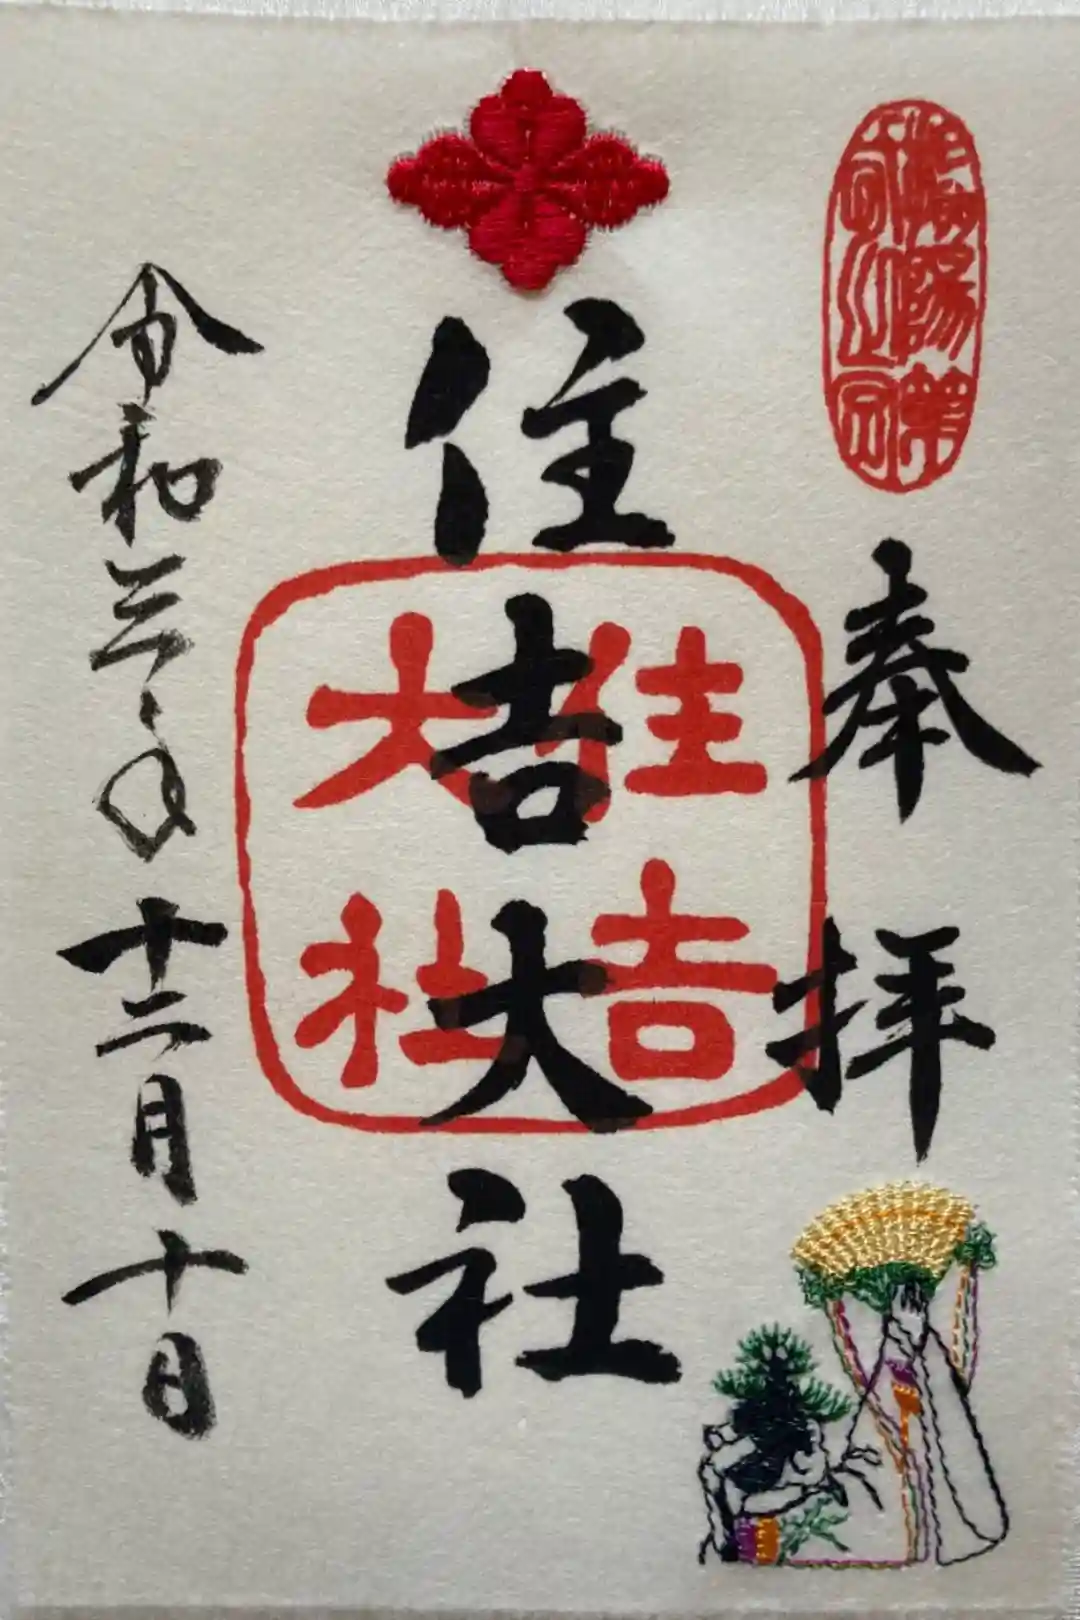 奉拝
住吉大社
住吉
大社
令和三年十二月十日